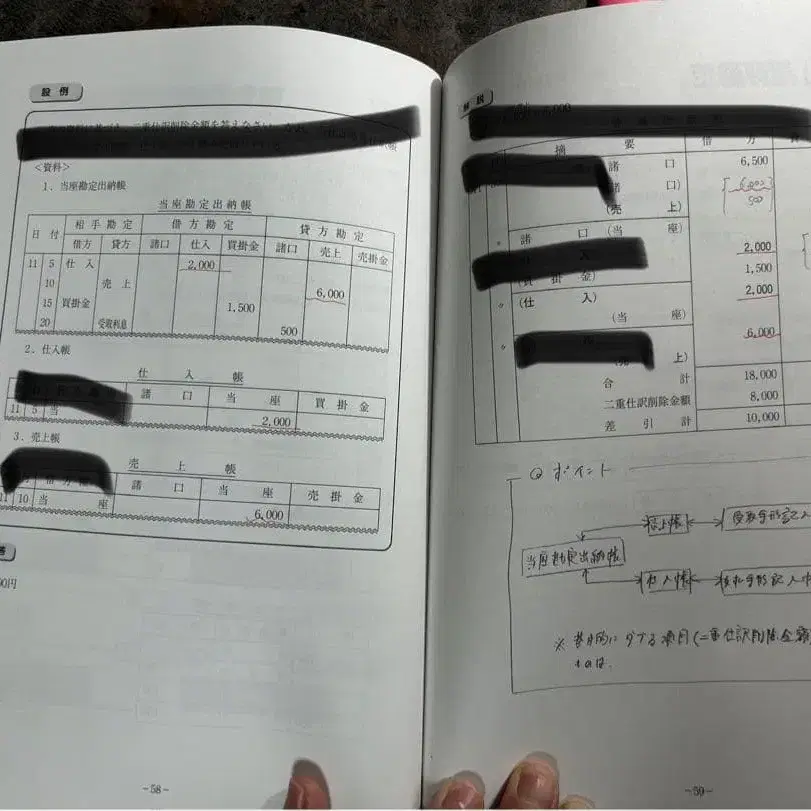 設例
<資料>
1．当座勘定出納帳
当座勘定出納帳
日付 相手勘定 借方勘定 貸方勘定
借方 貸方 諸口 仕入 買掛金 諸口 売上 売掛金
11 5 仕入 2,000
10 売上 6,000
15 買掛金 1,500
20 受取利息 500
2．仕入帳
仕入帳
諸口 当座 買掛金
11 5 当 2,000
3．売上帳
売上帳
諸口 当座 売掛金
11 10 当座 6,000
00円
－58－
解説
摘要 借方
諸口 6,500
口) 6,000
(売上) 500
諸口 (当座)
入) 2,000
(買掛金) 1,500
(仕入) 2,000
(当座)
6,000
上)
合計 18,000
二重仕訳削除金額 8,000
差引計 10,000
ポイント
売上帳 受取手形記入
当座勘定出納帳
仕入帳 支払手形記入帳
※ 基本的にダブる項目(二重仕訳削除金額)
のは.
－59－